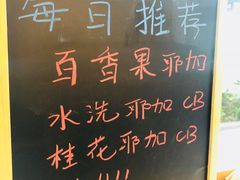 每日推荐
百香果耶加
水洗耶加 CB
桂花耶加 CB